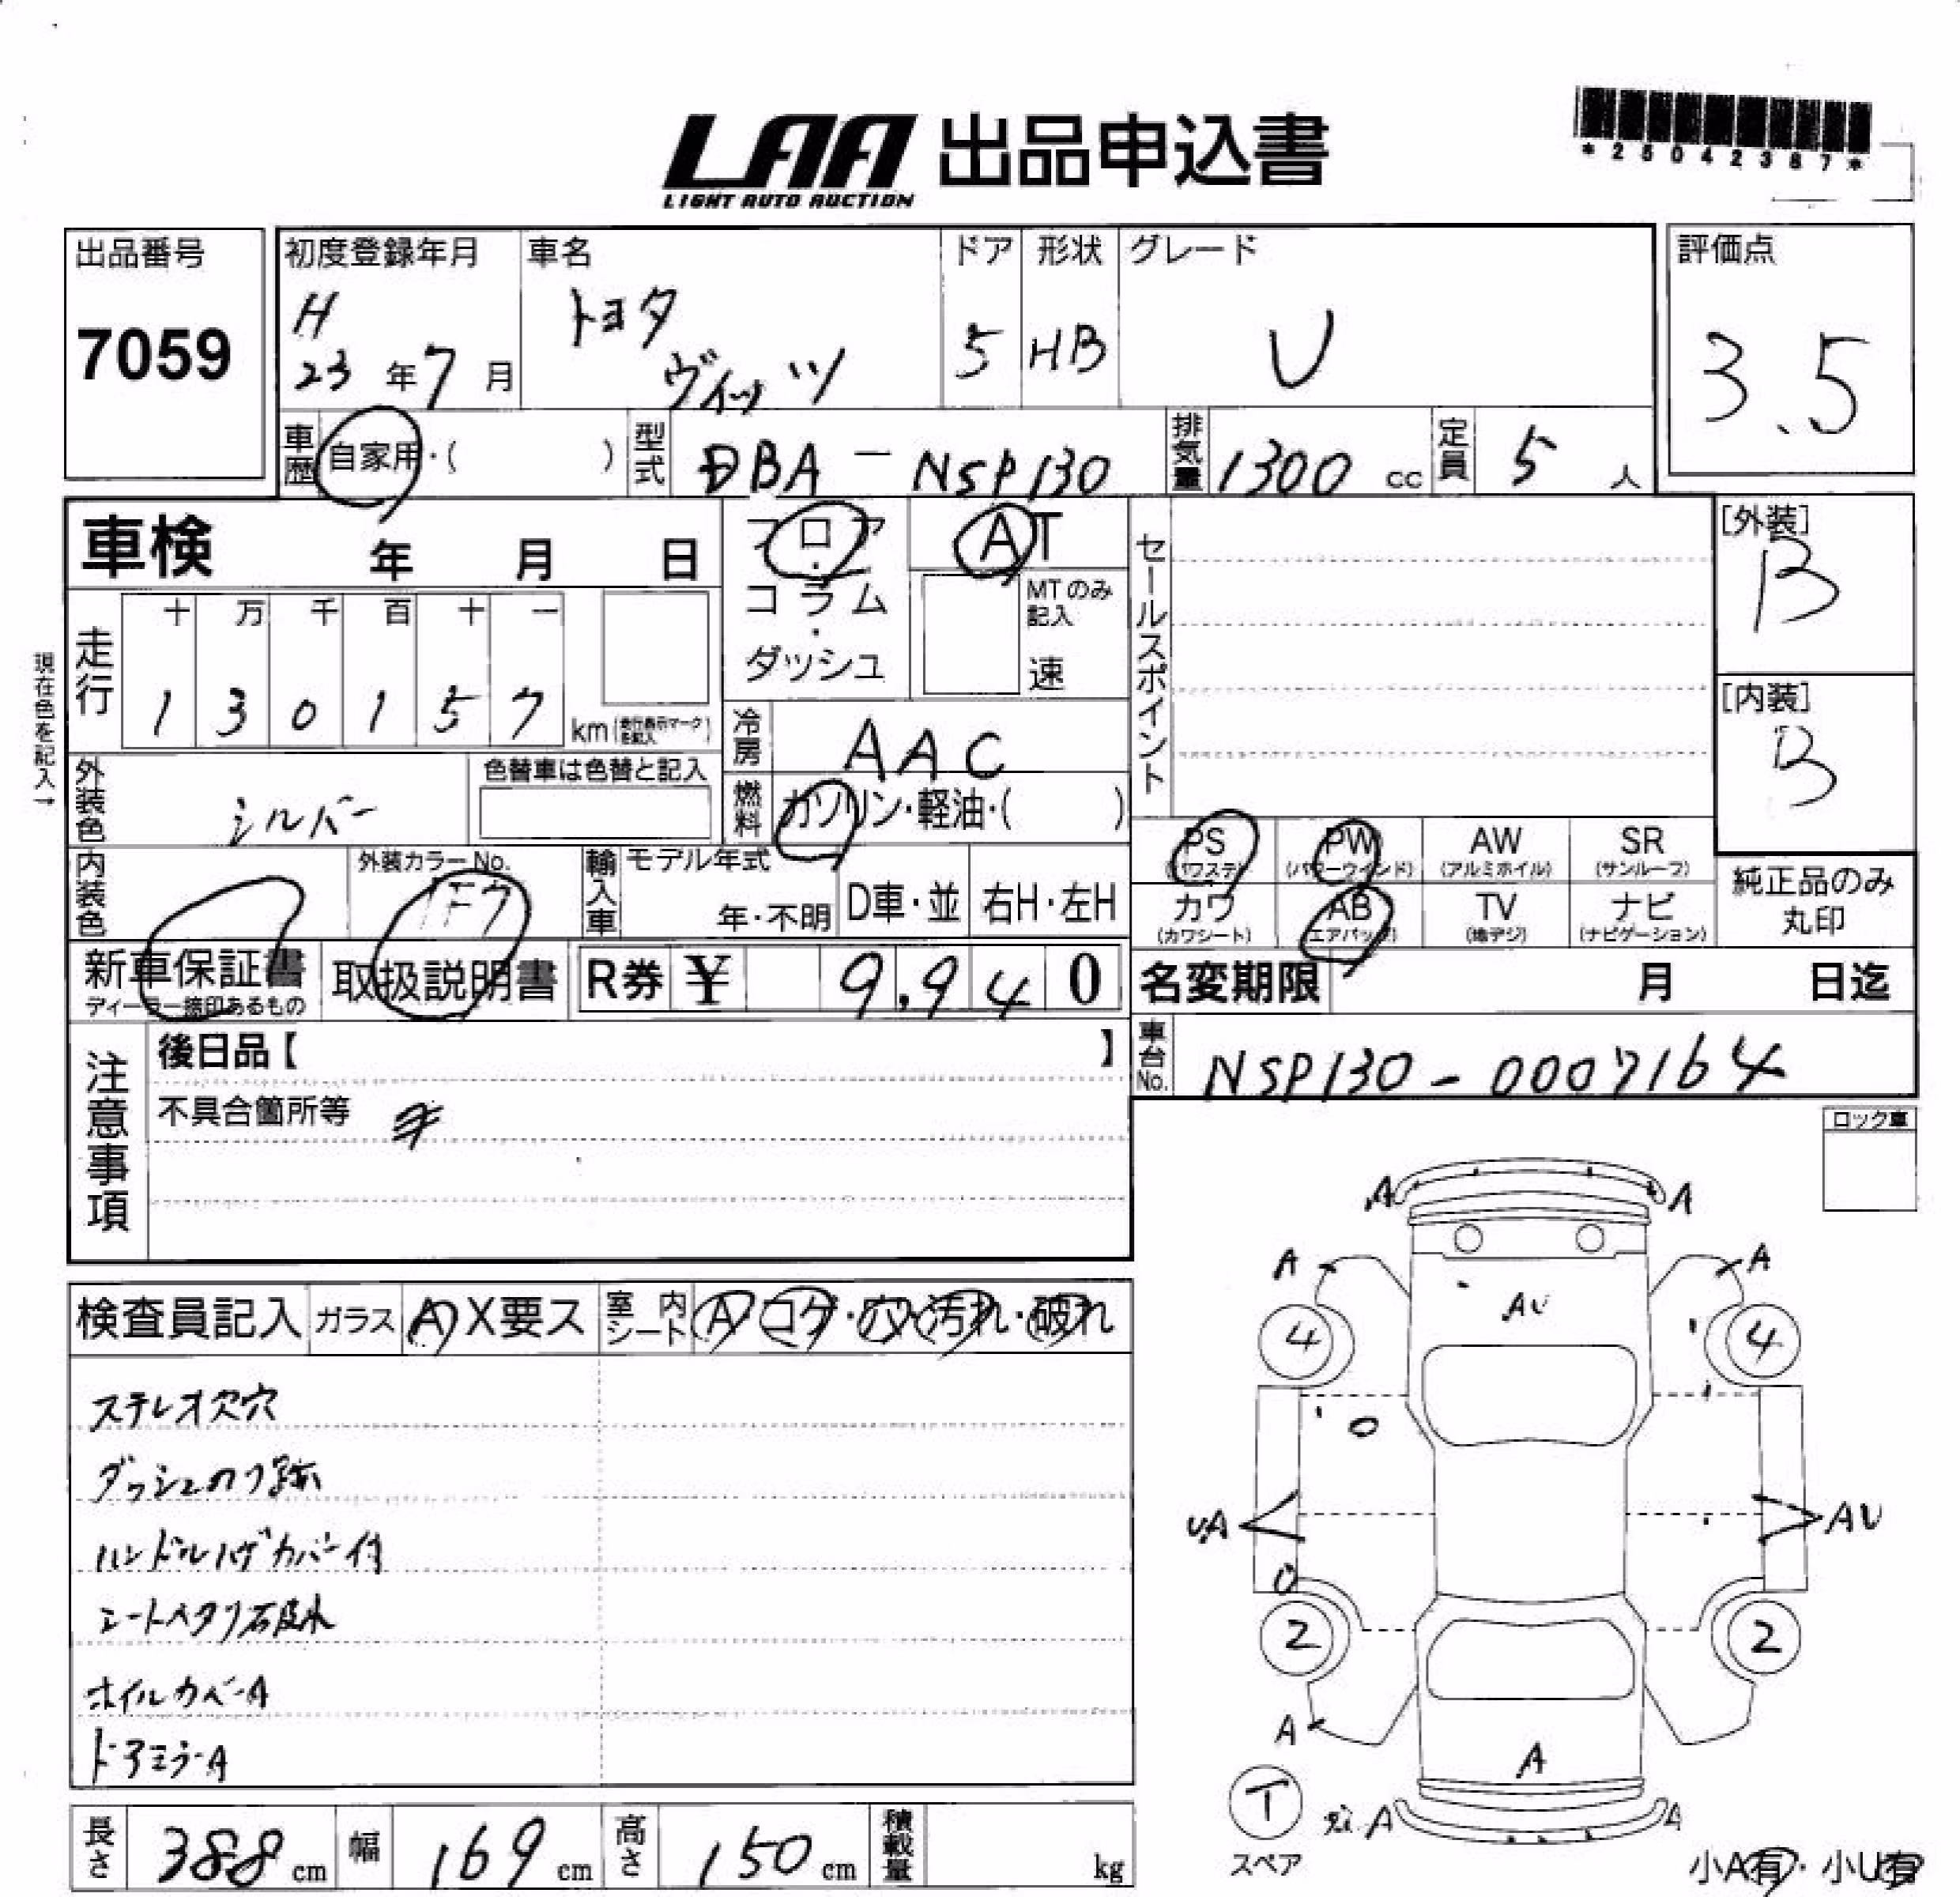 LAA 出品申込書
LIGHT AUTO AUCTION
*25042387*
出品番号
7059
初度登録年月
H
23 年 7 月
車名
トヨタ
ヴィッツ
ドア
5
形状
HB
グレード
U
評価点
3.5
車歴 自家用・( )
型式 DBA - NSP130
排気量 1300 cc
定員 5 人
車検 年 月 日
フロア
・
コラム
・
ダッシュ
AT
MTのみ
記入
速
セールスポイント
[外装]
B
[内装]
B
現在色を記入→
走行
十 万 千 百 十 一
1 3 0 1 5 7 km
冷房 AAC
外装色 シルバー
色替車は色替と記入
燃料 ガソリン・軽油・( )
内装色
外装カラーNo.
1F7
輸入車
モデル年式
年・不明
D車・並
右H・左H
PS PW AW SR
(パワステ) (パワーウインド) (アルミホイル) (サンルーフ)
カワ AB TV ナビ
(カワシート) (エアバッグ) (地デジ) (ナビゲーション)
純正品のみ
丸印
新車保証書
ディーラー捺印あるもの
取扱説明書
R券 ¥ 9,940
名変期限 月 日迄
注意事項
後日品【 】
不具合箇所等
車台No. NSP130-0007164
ロック車
検査員記入 ガラス A X要ス 室内シート A コゲ・穴・汚れ・破れ
ステレオ欠穴
ダッシュのり跡
ハンドルハゲカバー付
シートヘタリ
ホイルカバーA
ドアミラーA
A A
A A
AU
4 4
UA AU
2 2
A
A
T
スペア
A A
小A有・小U有
長さ 388 cm
幅 169 cm
高さ 150 cm
積載量 kg